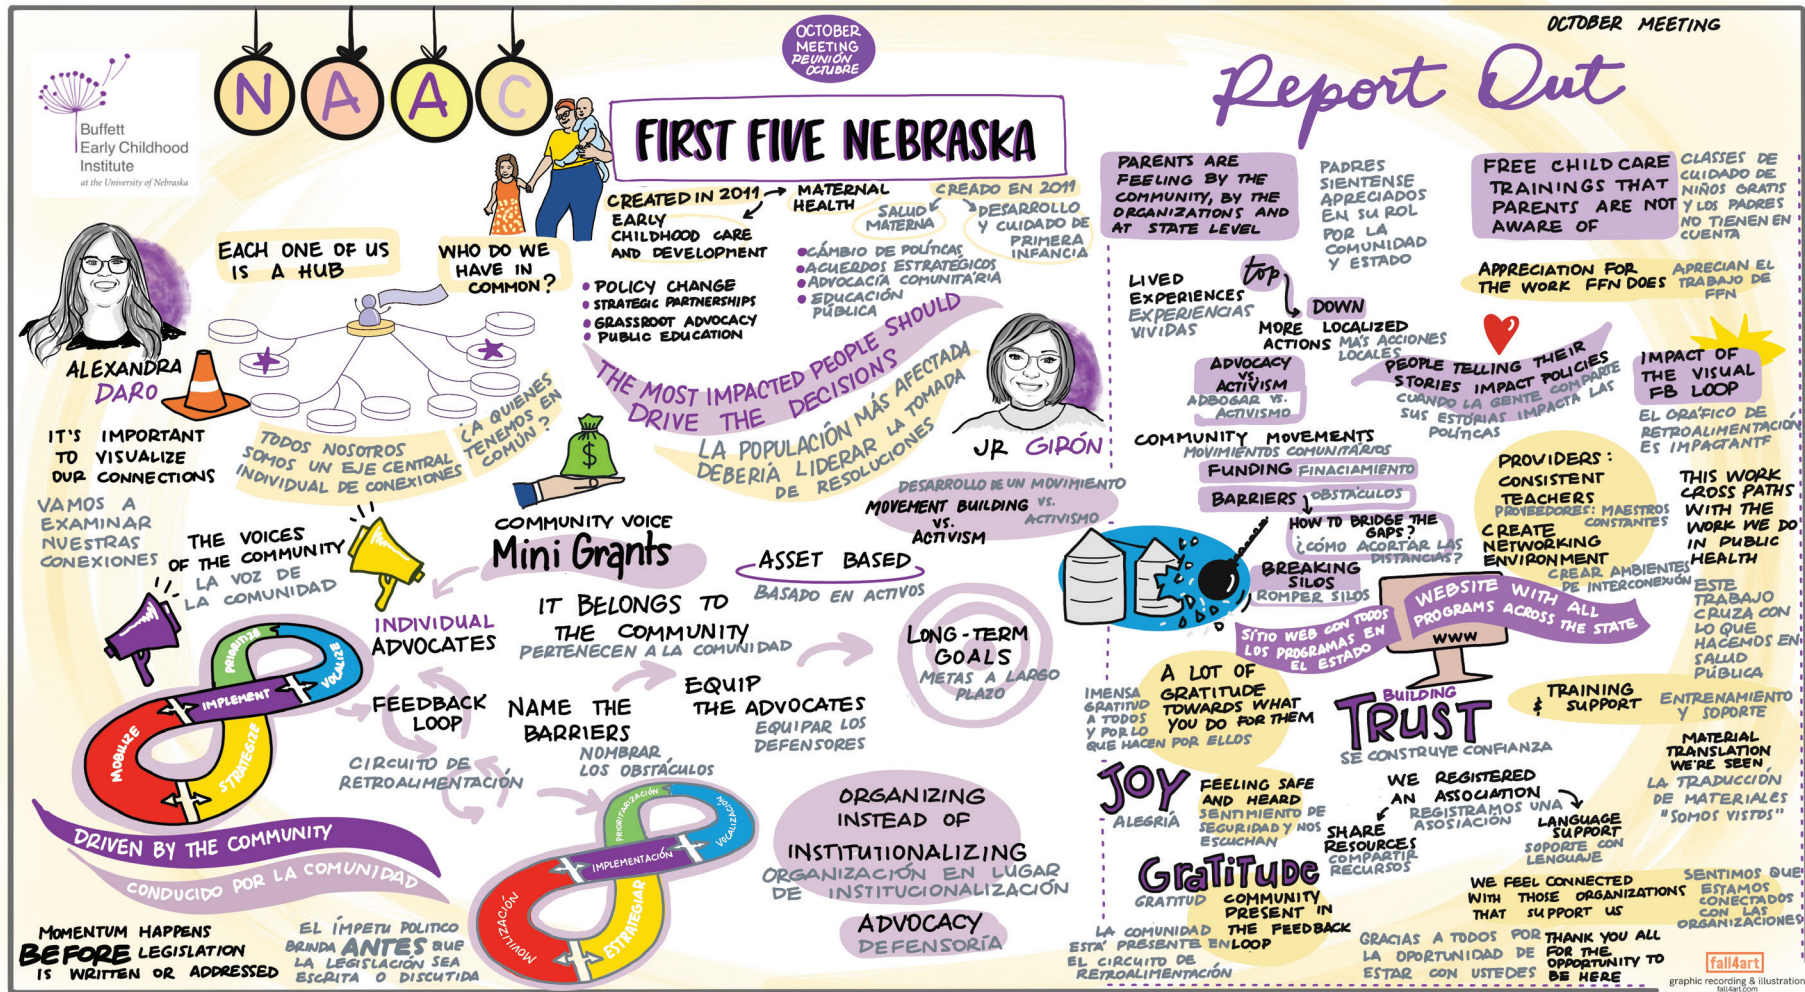 OCTOBER MEETING
Buffett
Early Childhood
Institute
at the University of Nebraska
N A A C
OCTOBER
MEETING
REUNIÓN
OCTUBRE
FIRST FIVE NEBRASKA
CREATED IN 2011
EARLY
CHILDHOOD CARE
AND DEVELOPMENT
MATERNAL
HEALTH
SALUD
MATERNA
CREADO EN 2011
DESARROLLO
Y CUIDADO DE
PRIMERA
INFANCIA
POLICY CHANGE
STRATEGIC PARTNERSHIPS
GRASSROOT ADVOCACY
PUBLIC EDUCATION
CÁMBIO DE POLÍTICAS
ACUERDOS ESTRATÉGICOS
ADVOCACÍA COMUNITÁRIA
EDUCACIÓN
PÚBLICA
EACH ONE OF US
IS A HUB
WHO DO WE
HAVE IN
COMMON?
ALEXANDRA
DARO
IT'S IMPORTANT
TO VISUALIZE
OUR CONNECTIONS
VAMOS A
EXAMINAR
NUESTRAS
CONEXIONES
TODOS NOSOTROS
SOMOS UN EJE CENTRAL
INDIVIDUAL DE CONEXIONES
¿A QUIENES
TENEMOS EN
COMÚN?
THE MOST IMPACTED PEOPLE SHOULD
DRIVE THE DECISIONS
LA POPULACIÓN MÁS AFECTADA
DEBERÍA LIDERAR LA TOMADA
DE RESOLUCIONES
JR GIRÓN
THE VOICES
OF THE COMMUNITY
LA VOZ DE
LA COMUNIDAD
$
COMMUNITY VOICE
Mini Grants
DESARROLLO DE UN MOVIMIENTO
VS.
ACTIVISMO
MOVEMENT BUILDING
VS.
ACTIVISM
ASSET BASED
BASADO EN ACTIVOS
INDIVIDUAL
ADVOCATES
IT BELONGS TO
THE COMMUNITY
PERTENECEN A LA COMUNIDAD
LONG-TERM
GOALS
METAS A LARGO
PLAZO
PRIORITIZE
VOCALIZE
IMPLEMENT
MOBILIZE
STRATEGIZE
FEEDBACK
LOOP
CIRCUITO DE
RETROALIMENTACIÓN
NAME THE
BARRIERS
NOMBRAR
LOS OBSTÁCULOS
EQUIP
THE ADVOCATES
EQUIPAR LOS
DEFENSORES
DRIVEN BY THE COMMUNITY
CONDUCIDO POR LA COMUNIDAD
PRIORITIZACIÓN
VOCALIZACIÓN
IMPLEMENTACIÓN
MOVILIZACIÓN
ESTRATEGIAR
ORGANIZING
INSTEAD OF
INSTITUTIONALIZING
ORGANIZACIÓN EN LUGAR
DE INSTITUCIONALIZACIÓN
ADVOCACY
DEFENSORÍA
MOMENTUM HAPPENS
BEFORE LEGISLATION
IS WRITTEN OR ADDRESSED
EL ÍMPETU POLITICO
BRINDA ANTES QUE
LA LEGISLACIÓN SEA
ESCRITA O DISCUTIDA
Report Out
PARENTS ARE
FEELING BY THE
COMMUNITY, BY THE
ORGANIZATIONS AND
AT STATE LEVEL
PADRES
SIENTENSE
APRECIADOS
EN SU ROL
POR LA
COMUNIDAD
Y ESTADO
FREE CHILD CARE
TRAININGS THAT
PARENTS ARE NOT
AWARE OF
CLASSES DE
CUIDADO DE
NIÑOS GRATIS
Y LOS PADRES
NO TIENEN EN
CUENTA
LIVED
EXPERIENCES
EXPERIENCIAS
VIVIDAS
top
DOWN
MORE LOCALIZED
ACTIONS
MÁS ACCIONES
LOCALES
APPRECIATION FOR
THE WORK FFN DOES
APRECIAN EL
TRABAJO DE
FFN
ADVOCACY
VS.
ACTIVISM
ADBOGAR VS.
ACTIVISMO
PEOPLE TELLING THEIR
STORIES IMPACT POLICIES
CUANDO LA GENTE COMPARTE
SUS ESTÓRIAS IMPACTA LAS
POLÍTICAS
IMPACT OF
THE VISUAL
FB LOOP
EL GRÁFICO DE
RETROALIMENTACIÓN
ES IMPACTANTE
COMMUNITY MOVEMENTS
MOVIMIENTOS COMUNITÁRIOS
FUNDING FINACIAMIENTO
BARRIERS OBSTÁCULOS
HOW TO BRIDGE THE
GAPS?
¿CÓMO ACORTAR LAS
DISTANCIAS?
BREAKING
SILOS
ROMPER SILOS
PROVIDERS:
CONSISTENT
TEACHERS
PROVEEDORES: MAESTROS
CONSTANTES
CREATE
NETWORKING
ENVIRONMENT
CREAR AMBIENTES
DE INTERCONEXIÓN
THIS WORK
CROSS PATHS
WITH THE
WORK WE DO
IN PUBLIC
HEALTH
ESTE
TRABAJO
CRUZA CON
LO QUE
HACEMOS EN
SALUD
PÚBLICA
WEBSITE WITH ALL
PROGRAMS ACROSS THE STATE
WWW
SÍTIO WEB CON TODOS
LOS PROGRAMAS EN
EL ESTADO
A LOT OF
GRATITUDE
TOWARDS WHAT
YOU DO FOR THEM
IMENSA
GRATITUD
A TODOS
Y POR LO
QUE HACEN POR ELLOS
BUILDING
TRUST
SE CONSTRUYE CONFIANZA
TRAINING
& SUPPORT
ENTRENAMIENTO
Y SOPORTE
MATERIAL
TRANSLATION
WE'RE SEEN
LA TRADUCCIÓN
DE MATERIALES
"SOMOS VISTOS"
JOY
ALEGRÍA
FEELING SAFE
AND HEARD
SENTIMIENTO DE
SEGURIDAD Y NOS
ESCUCHAN
WE REGISTERED
AN ASSOCIATION
REGISTRAMOS UNA
ASOSIACIÓN
SHARE
RESOURCES
COMPARTIR
RECURSOS
LANGUAGE
SUPPORT
SOPORTE CON
LENGUAJE
GRATITUDE
GRATITUD
COMMUNITY
PRESENT IN
THE FEEDBACK
LOOP
LA COMUNIDAD
ESTÁ PRESENTE EN
EL CIRCUITO DE
RETROALIMENTACIÓN
WE FEEL CONNECTED
WITH THOSE ORGANIZATIONS
THAT SUPPORT US
SENTIMOS QUE
ESTAMOS
CONECTADOS
CON LAS
ORGANIZACIONES
GRACIAS A TODOS POR
LA OPORTUNIDAD DE
ESTAR CON USTEDES
THANK YOU ALL
FOR THE
OPPORTUNITY TO
BE HERE
fall4art
graphic recording & illustration
fall4art.com